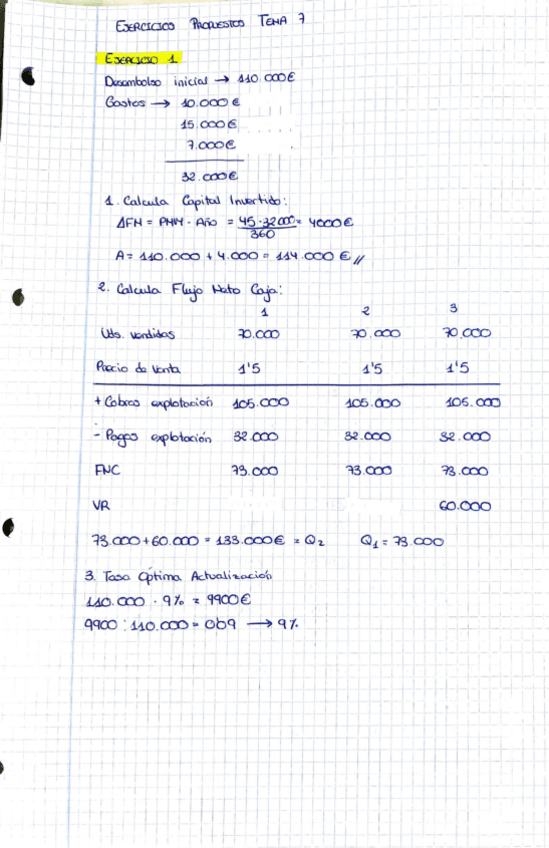 EJERCICIOS PROPUESTOS TEMA 7
EJERCICIO 1
Desembolso inicial → 110.000€
Gastos → 10.000€
15.000€
7.000€
32.000€
1. Calcula Capital Invertido:
ΔFN = PMM · Año = 45·32000/360 = 4000€
A = 110.000 + 4.000 = 114.000 € //
2. Calcula Flujo Neto Caja:
1 2 3
Uds. vendidas 70.000 70.000 70.000
Precio de venta 1'5 1'5 1'5
+ Cobros explotación 105.000 105.000 105.000
- Pagos explotación 32.000 32.000 32.000
FNC 73.000 73.000 73.000
VR 60.000
73.000+60.000 = 133.000€ = Q2 Q1 = 73.000
3. Tasa Óptima Actualización
110.000 · 9% = 9900€
9900 : 110.000 = 0'09 → 9%